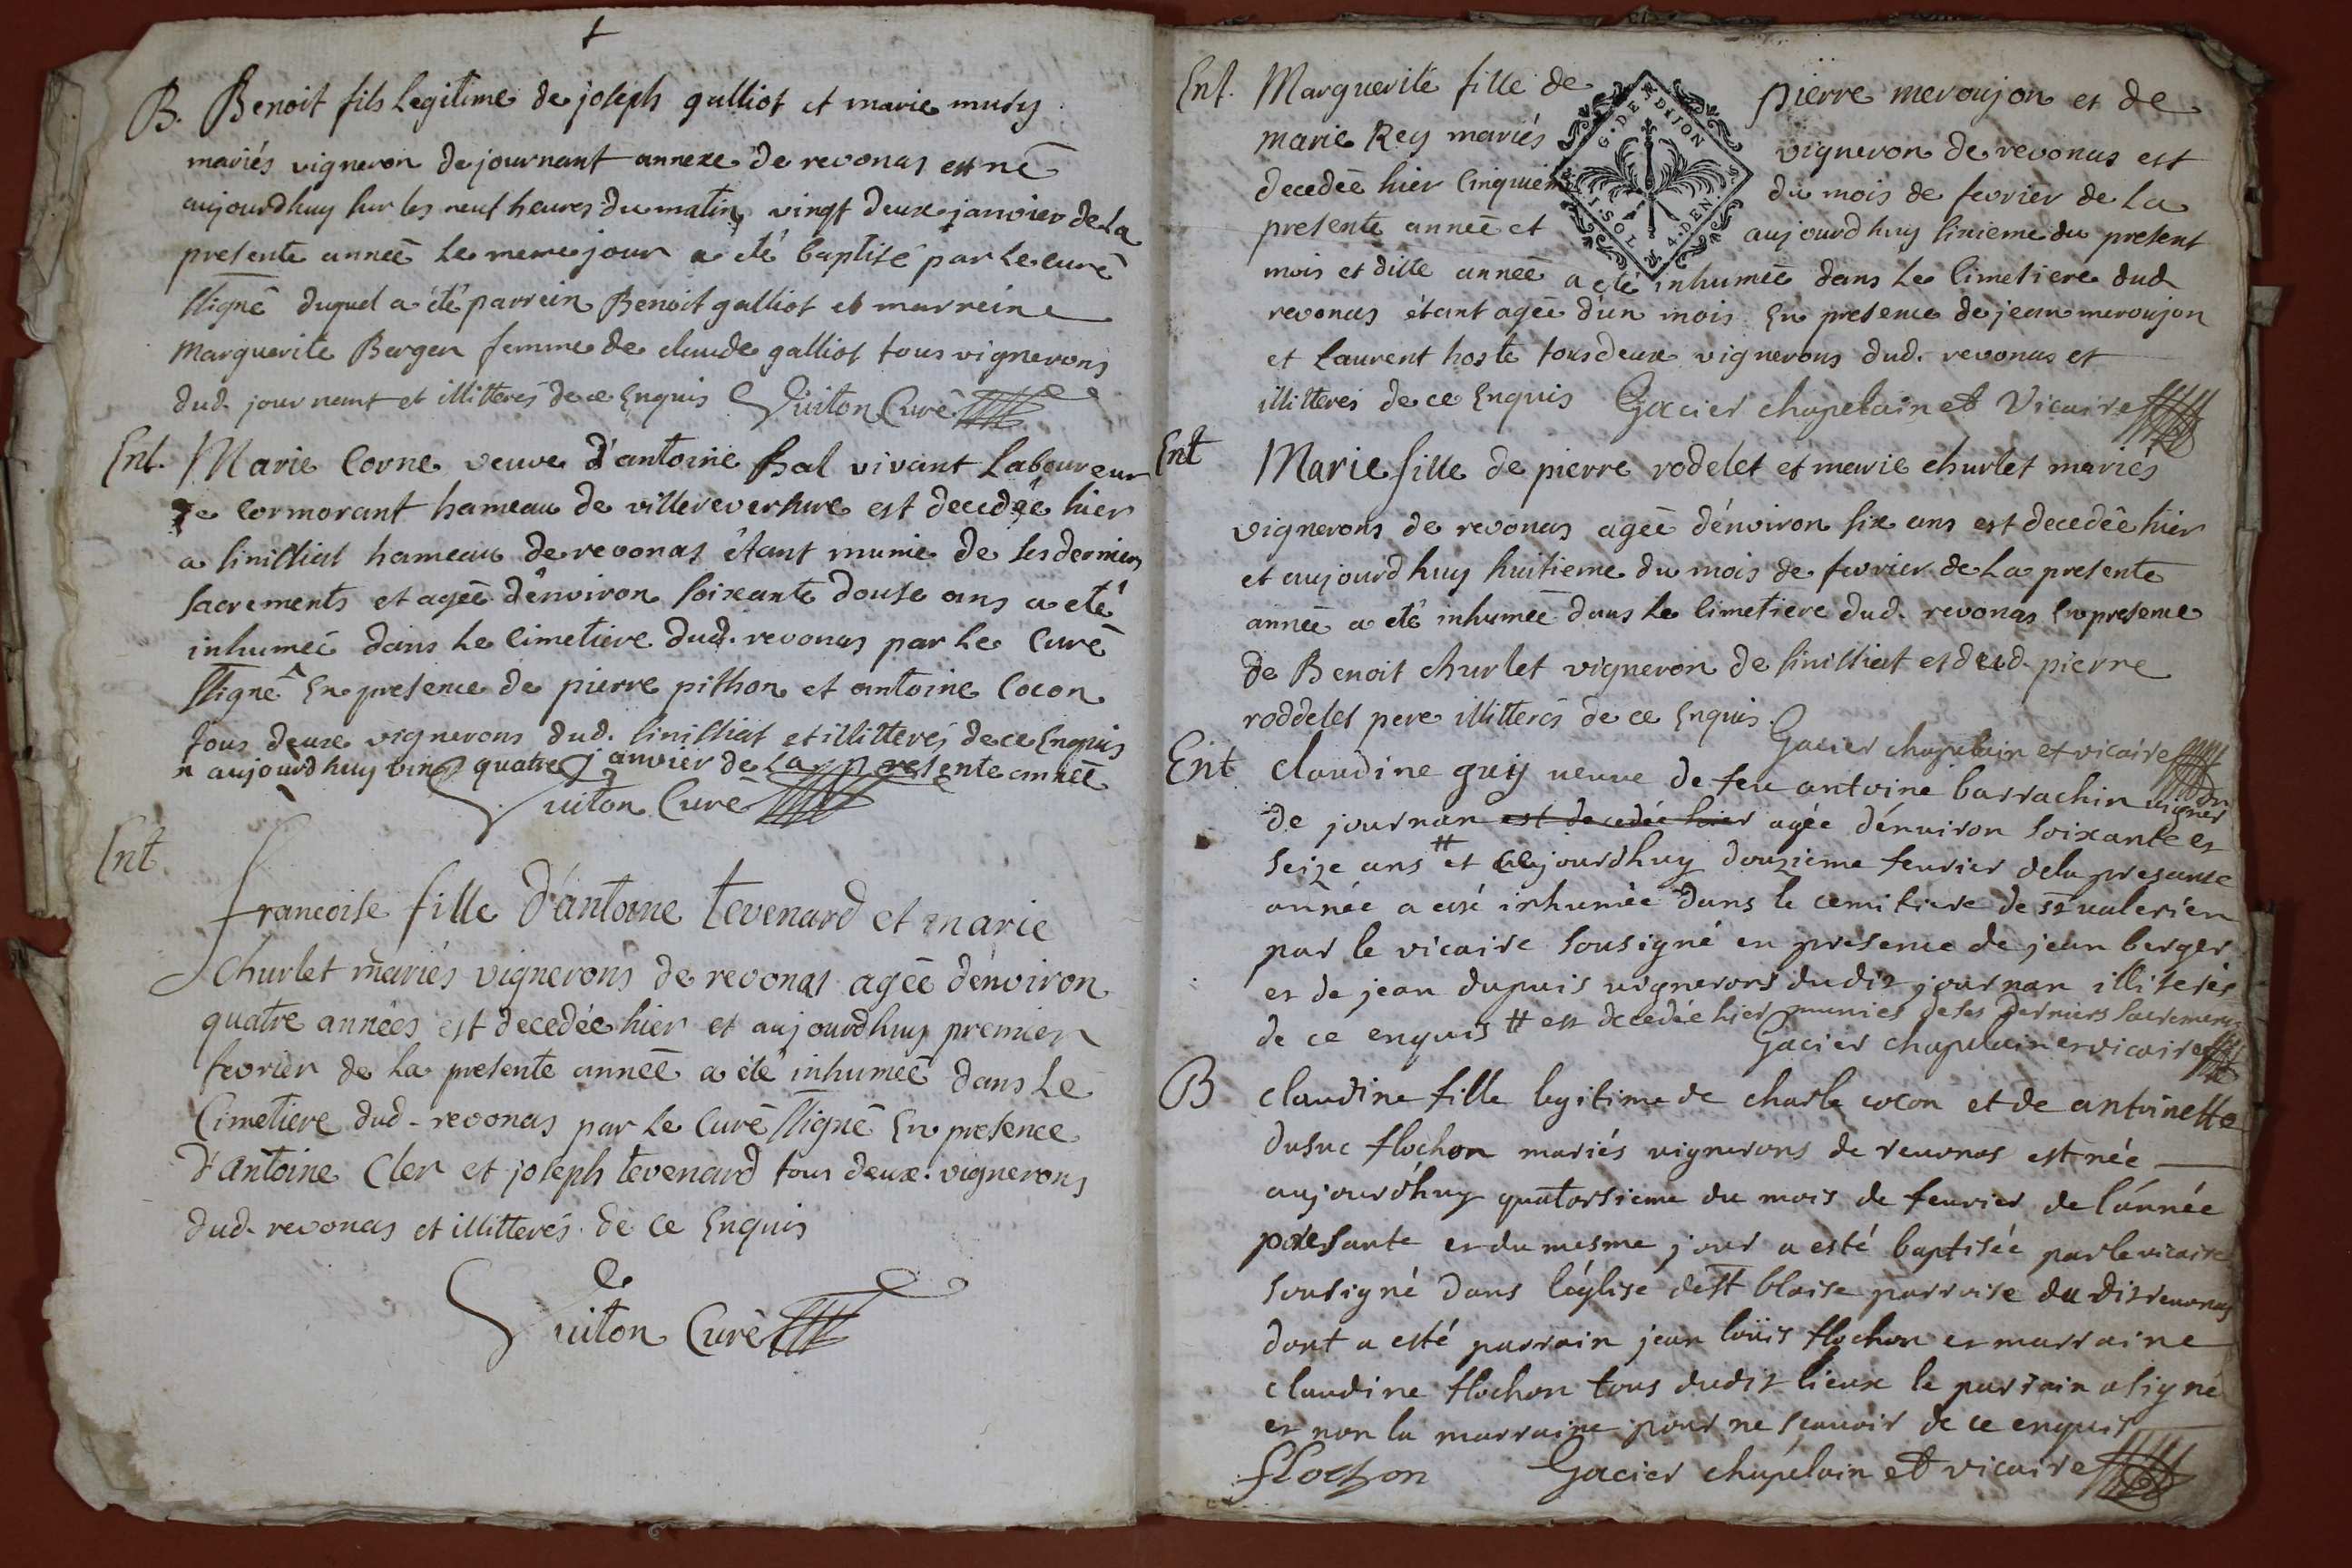 B. Benoit fils Legitime de joseph galliot et marie mury
mariés vigneron de journant annexe de revonas est né
aujourdhuy sur les neuf heures du matin vingt deux janvier de La
presente année Le meme jour a été baptisé par Le curé
ssigné duquel a été parrein Benoit galliot et marreine
Marguerite Berger femme de claude galliot tous vignerons
dud. journant et illitteres de ce Enquis Guiton Curé
Ent. Marie Corne veuve d'antoine Bal vivant Laboureur
de Cormorant hameau de villereversure est decedée hier
a sinissiat hameau de revonas étant munie de ses derniers
sacrements et agée d'environ soixante douse ans a été
inhumée dans Le Cimetiere dud. revonas par Le Curé
ssigné En presence de pierre pithon et antoine Cocon
tous deux vignerons dud. sinissiat et illitterés de ce Enquis
aujourdhuy vingt quatre janvier de La presente année
Guiton Curé
Ent.
francoise fille d'antoine tevenard et marie
Churlet mariés vignerons de revonas agée d'environ
quatre années est decedée hier et aujourdhuy premier
fevrier de La presente année a été inhumée dans Le
Cimetiere dud. revonas par Le Curé ssigné En presence
d'antoine Cler et joseph tevenard tous deux vignerons
dud. revonas et illitterés de ce Enquis
Guiton Curé
Ent. Marguerite fille de pierre meroujon et de
marie Rey mariés vigneron de revonas est
decedée hier Cinquieme du mois de fevrier de La
presente année et aujourdhuy sixieme du present
mois et ditte année a été inhumée dans Le Cimetiere dud.
revonas étant agée d'un mois En presence de jean meroujon
et Laurent hoste tous deux vignerons dud. revonas et
illitteres de ce Enquis Gacier chapelain et Vicaire
G. DE DIJON
I. SOL. 4. DEN.
Ent Marie fille de pierre rodelet et marie churlet mariés
vignerons de revonas agée d'environ six ans est decedée hier
et aujourdhuy huitieme du mois de fevrier de La presente
année a été inhumée dans Le Cimetiere dud. revonas En presence
de Benoit churlet vigneron de sinissiat et dud. pierre
roddelet pere illitterés de ce Enquis.
Gacier chapelain et vicaire
Ent claudine guy veuve de feu antoine barrachin vigner
de journan est decedée hier agée d'environ soixante et
seize ans # et aujourdhuy douzieme fevrier de la presante
année a esté inhumée dans le cemitiere de st valerien
par le vicaire sousigné en presence de jean berger
et de jean dupuis vignerons dudit journan illiterés
de ce enquis # est decedée hier munies de ses derniers sacremens
Gacier chapelain et vicaire
B claudine fille legitime de charle cocon et de antoinette
dusuc flochon mariés vignerons de revonas est née
aujourdhuy quatorsieme du mois de fevrier de l'année
presante et du mesme jour a esté baptisée par le vicaire
sousigné dans l'église de st blaise parroise du dit revonas
dont a esté parrain jean loüis flochon et marraine
claudine flochon tous dudit lieux le parrain a signé
et non la marraine pour ne scavoir de ce enquis
flochon Gacier chapelain et vicaire